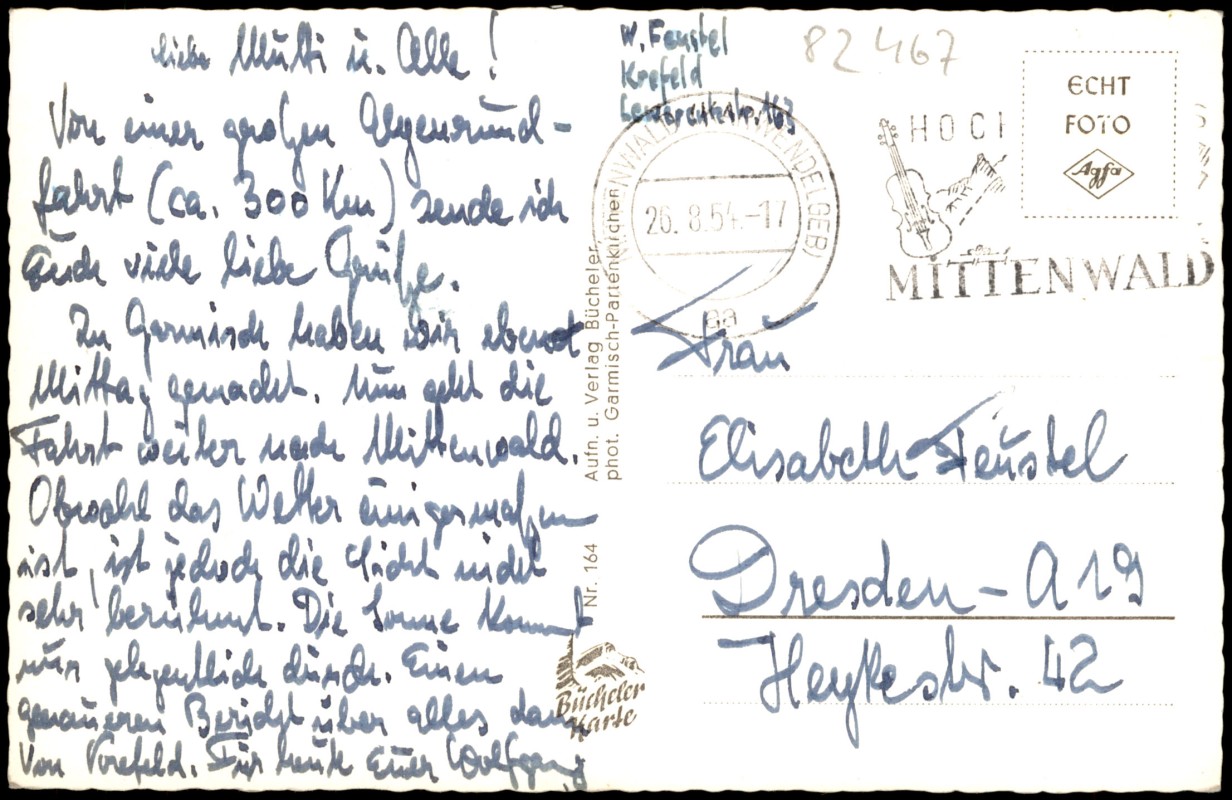 Liebe Mutti u. Alle!
Von einer großen Alpenrund-
fahrt (ca. 300 Km) sende ich
Euch viele liebe Grüße.
In Garmisch haben wir ebend
Mittag gemacht. Nun geht die
Fahrt weiter nach Mittenwald.
Obwohl das Wetter einigermaßen
ist, ist jedoch die Sicht nicht
sehr berühmt. Die Sonne kommt
nur gelegentlich durch. Einen
genaueren Bericht über alles dann
von Krefeld. Für heute Euer Wolfgang
W. Feustel
Krefeld
163
82467
ECHT
FOTO
Agfa
HOCI
MITTENWALD
26.8.54.-17
aa
Aufn. u. Verlag Bücheler,
phot. Garmisch-Partenkirchen
Nr. 164
Bücheler
Karte
Frau
Elisabeth Feustel
Dresden - A 19
Heykestr. 42